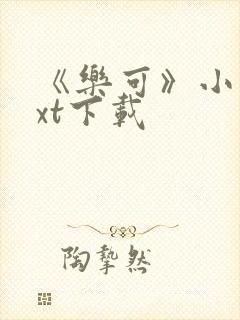 《樂可》小
xt下載
陶摯然